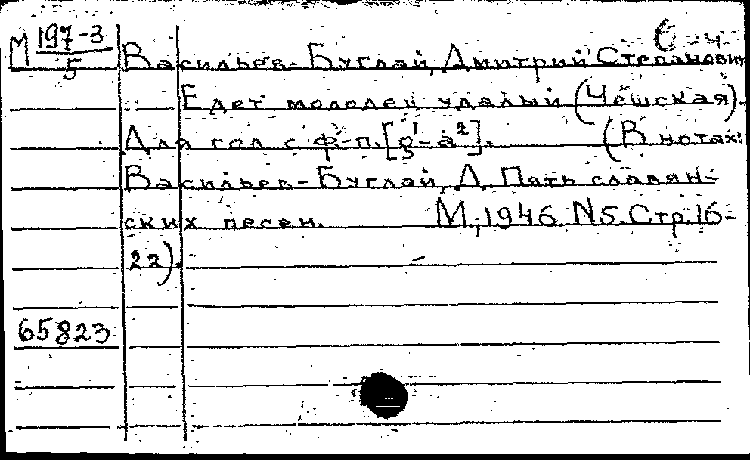 М 197-3/5
Васильев-Буглай, Дмитрий Степанович
Едет молодец удалый (Чешская).
Для гол. с ф-п. [g¹-a²]. (В нотах:
Васильев-Буглай, Д. Пять славян-
ских песен. М., 1946. N5. Стр. 16-
22).
65823